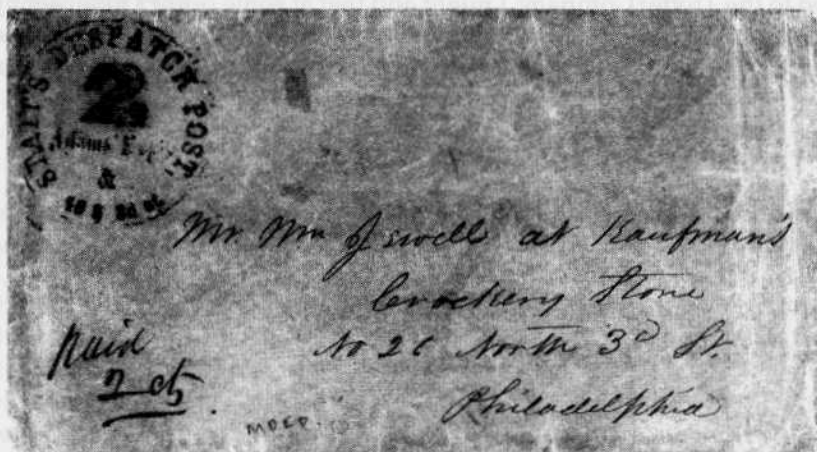 STAIT'S DESPATCH POST
2
Adams' Exp.
&
Mr Wm Jewell at Kaufman's
Crockery Store
No 26 North 3d St.
Philadelphia
Paid
2 cts